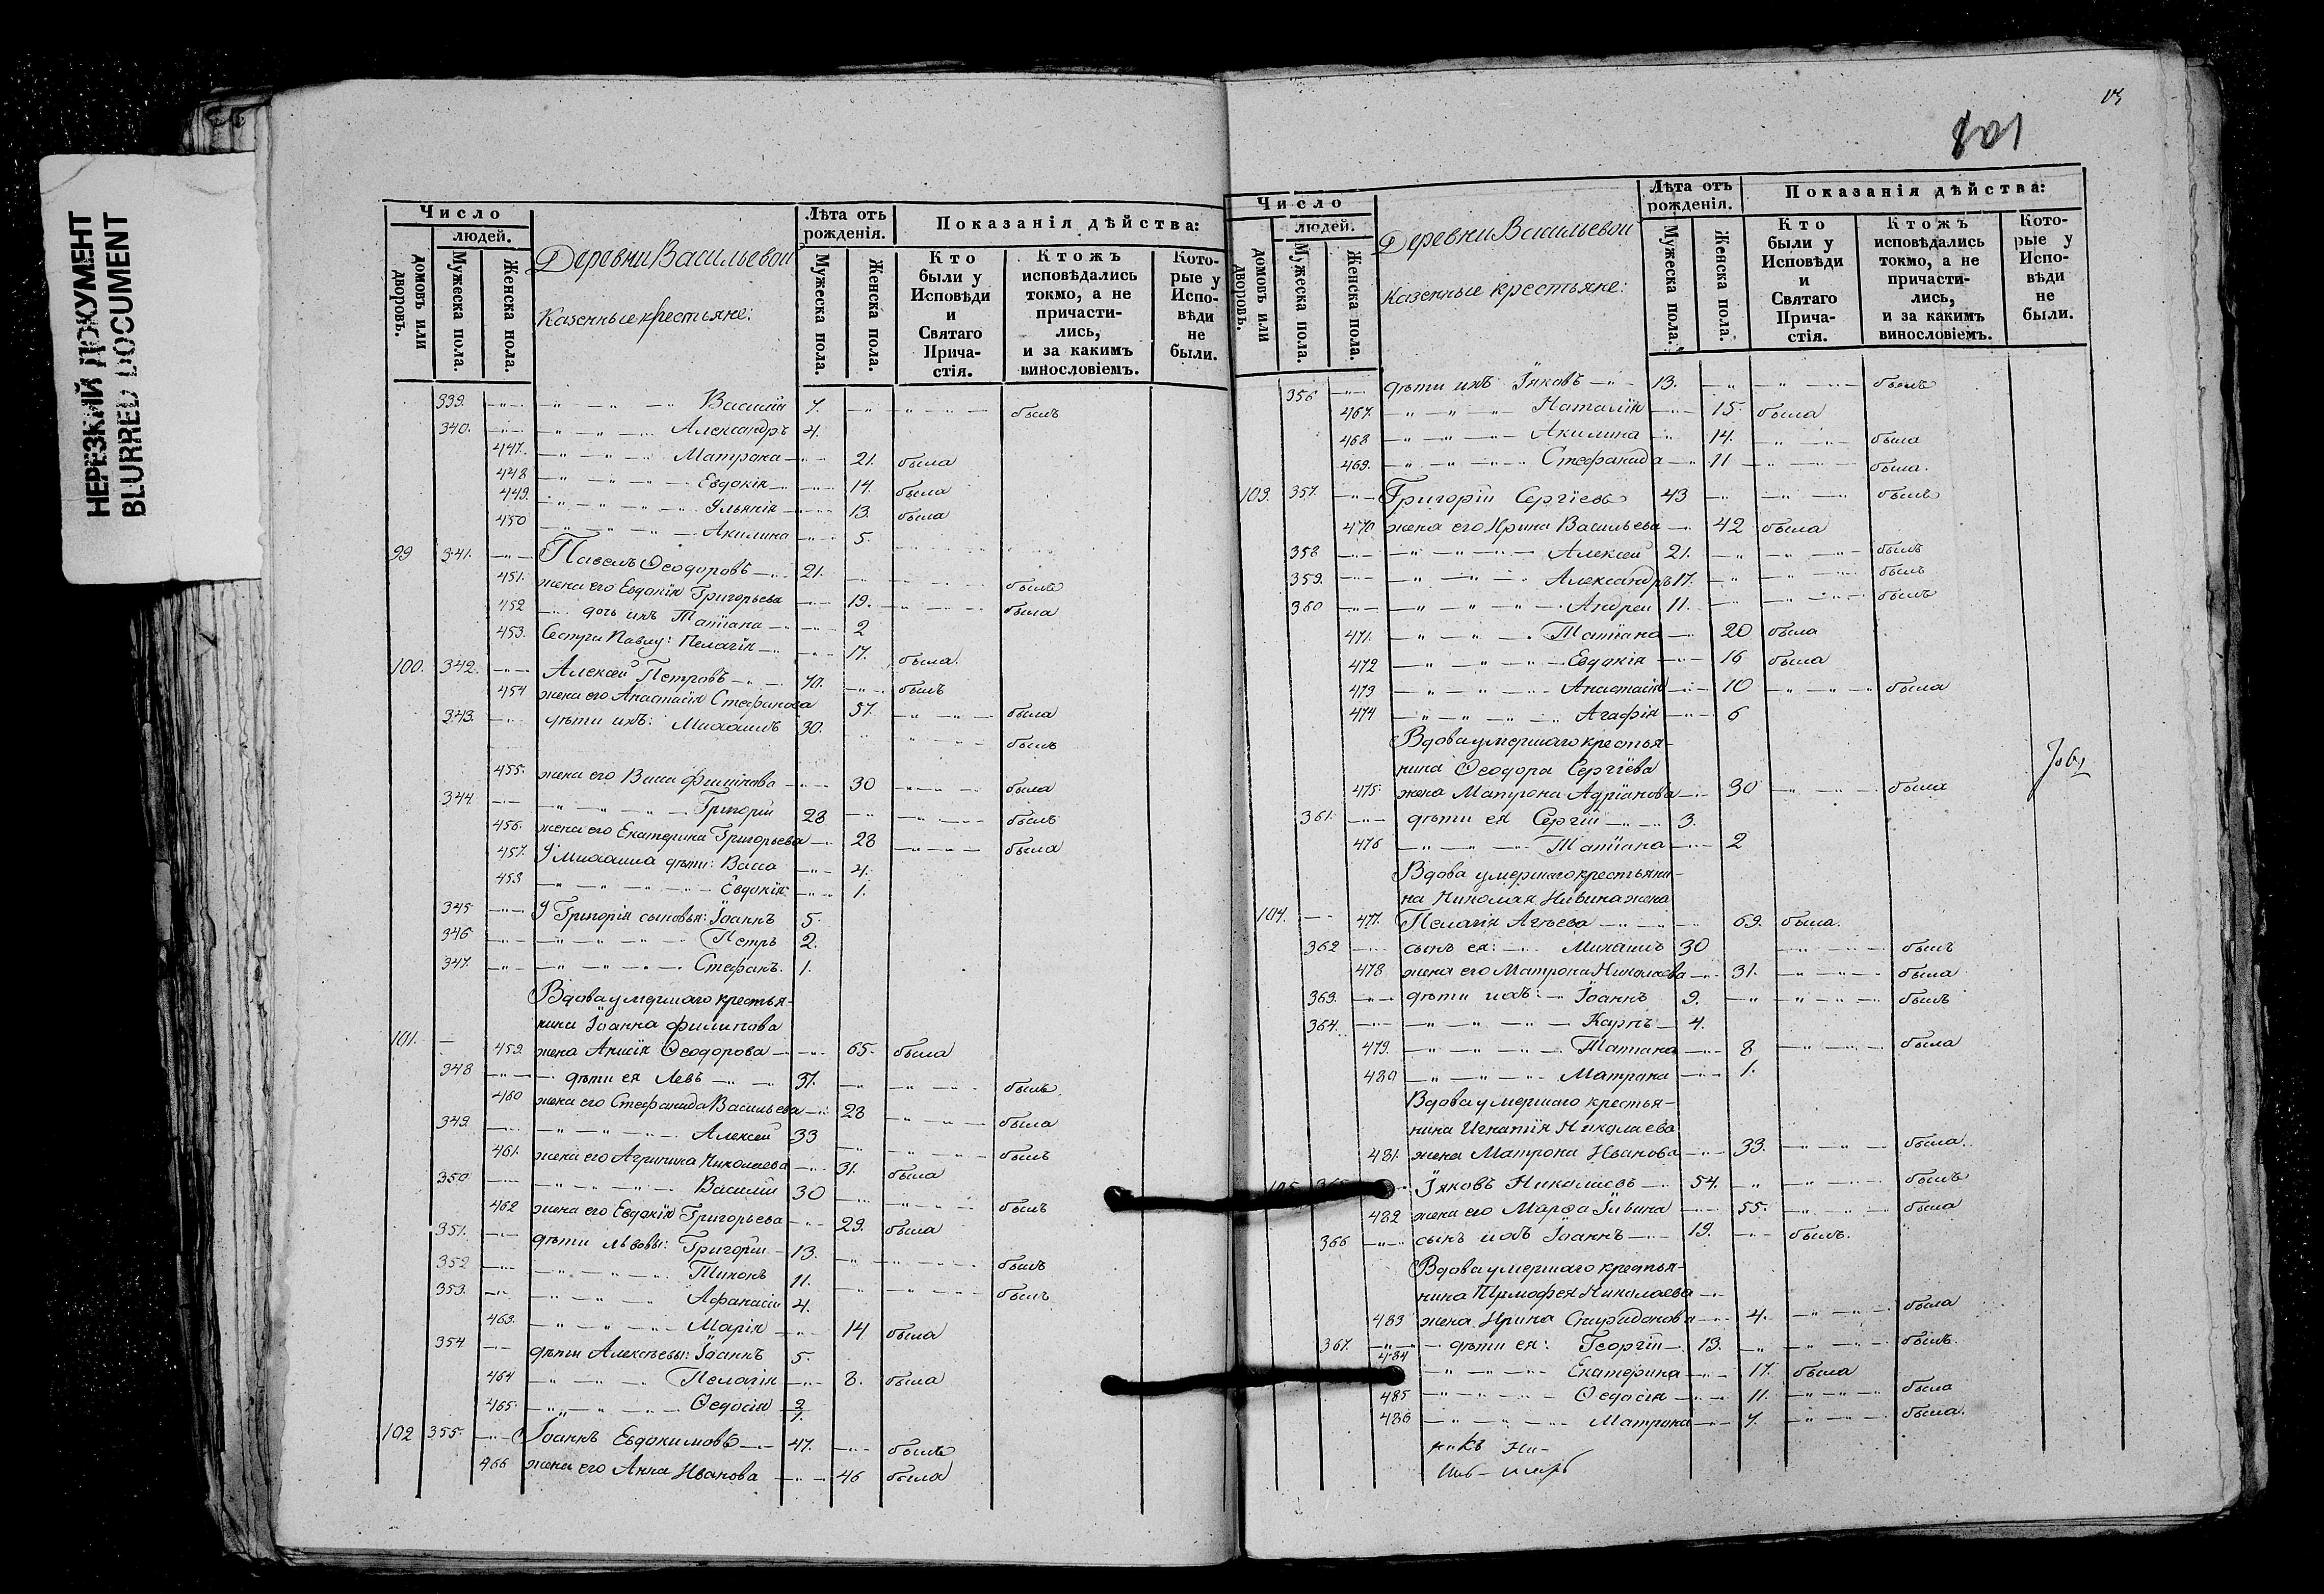 НЕРЕЗКИЙ ДОКУМЕНТ
BLURRED DOCUMENT
Число
людей.
домовъ или дворовъ.
Мужеска пола.
Женска пола.
Деревни Васильевой
Казенные крестьяне:
Лѣта отъ рожденія.
Мужеска пола.
Женска пола.
Показанія дѣйства:
Кто были у Исповѣди и Святаго Прича-стія.
Ктожъ исповѣдались токмо, а не причасти-лись, и за какимъ винословіемъ.
Кото-рые у Испо-вѣди не были.
339. Василій 7. былъ
340. Александръ 4.
447. Матрона 21. была
448 Евдокія 14. была
449. Ульянія 13. была
450 Акилина 5.
99 341. Павелъ Ѳеодоровъ 21. былъ
451. жена его Евдокія Григорьева 19. была
452 дочь ихъ Татіана 2
453. Сестра Павлу: Пелагія 17. была.
100. 342. Алексей Петровъ 70. былъ
454 жена его Анастасія Стефанова 57. была
343. дѣти ихъ: Михаилъ 30. былъ
455. жена его Васса 30 была
344 Григорій 28 былъ
456. жена его Екатерина Григорьева 28 была
457. У Михаила дѣти: Васса 4.
458 Евдокія 1.
345 У Григорія сыновья: Іоаннъ 5.
346 Петръ 2.
347. Стефанъ. 1.
Вдова умершаго крестья-
нина Іоанна Филипова
101. 459. жена Анисія Ѳеодорова 65. была
348 дѣти ея Левъ 37. былъ
460 жена его Стефанида Васильева 28 была
349. Алексей 33 былъ
461. жена его Агрипина Николаева 31. была
350 Василій 30 былъ
462 жена его Евдокія Григорьева 29. была
351. дѣти Львовы: Григорій 13. былъ
352 Тихонъ 11. былъ
353. Афанасій 4.
463. Марія 14 была
354 дѣти Алексѣевы: Іоаннъ 5.
464 Пелагія 8. была
465. Ѳедосія
102 355. Іоаннъ Евдокимовъ 47. былъ
466 жена его Анна Иванова 46 была
801
Число
людей.
домовъ или дворовъ.
Мужеска пола.
Женска пола.
Деревни Васильевой
Казенные крестьяне:
Лѣта отъ рожденія.
Мужеска пола.
Женска пола.
Показанія дѣйства:
Кто были у Исповѣди и Святаго Прича-стія.
Ктожъ исповѣдались токмо, а не причасти-лись, и за какимъ винословіемъ.
Кото-рые у Испо-вѣди не были.
356 дѣти ихъ Іяковъ 13. былъ
467. Наталія 15. была
468 Акилина 14. была
469. Стефанида 11 была.
103. 357. Григорій Сергіевъ 43 былъ
470 жена его Ирина Васильева 42 была
358 Алексей 21. былъ
359. Александръ 17. былъ
360 Андрей 11. былъ
471. Татіана 20 была
472 Евдокія 16 была
473 Анастасія 10 была
474 Агафія 6
Вдова умершаго крестья-
нина Ѳеодора Сергіева
475. жена Матрона Адріанова 30 была
361. дѣти ея Сергій 3.
476 Татіана 2
Вдова умершаго крестьяни-
на Николая жена
104. 477. Пелагія Агѣева 69. была.
362 сынъ ея: Михаилъ 30 былъ
478 жена его Матрона Николаева 31. была
363. дѣти ихъ: Іоаннъ 9. былъ
364. Карпъ 4.
479. Татіана 8 была
480 Матрона 1.
Вдова умершаго крестья-
нина Игнатія Николаева
481. жена Матрона Иванова 33. была.
Іяковъ Николаевъ 54. былъ
482 жена его Марѳа 55. была
366 сынъ ихъ Іоаннъ 19. былъ.
Вдова умершаго крестья-
нина Тимофея Николаева
483 жена Ирина Спиридонова 4. была
367. дѣти ея: Георгій 13. былъ.
484 Екатерина 17. была
485 Ѳедосія 11. была
486 Матрона 7. была.